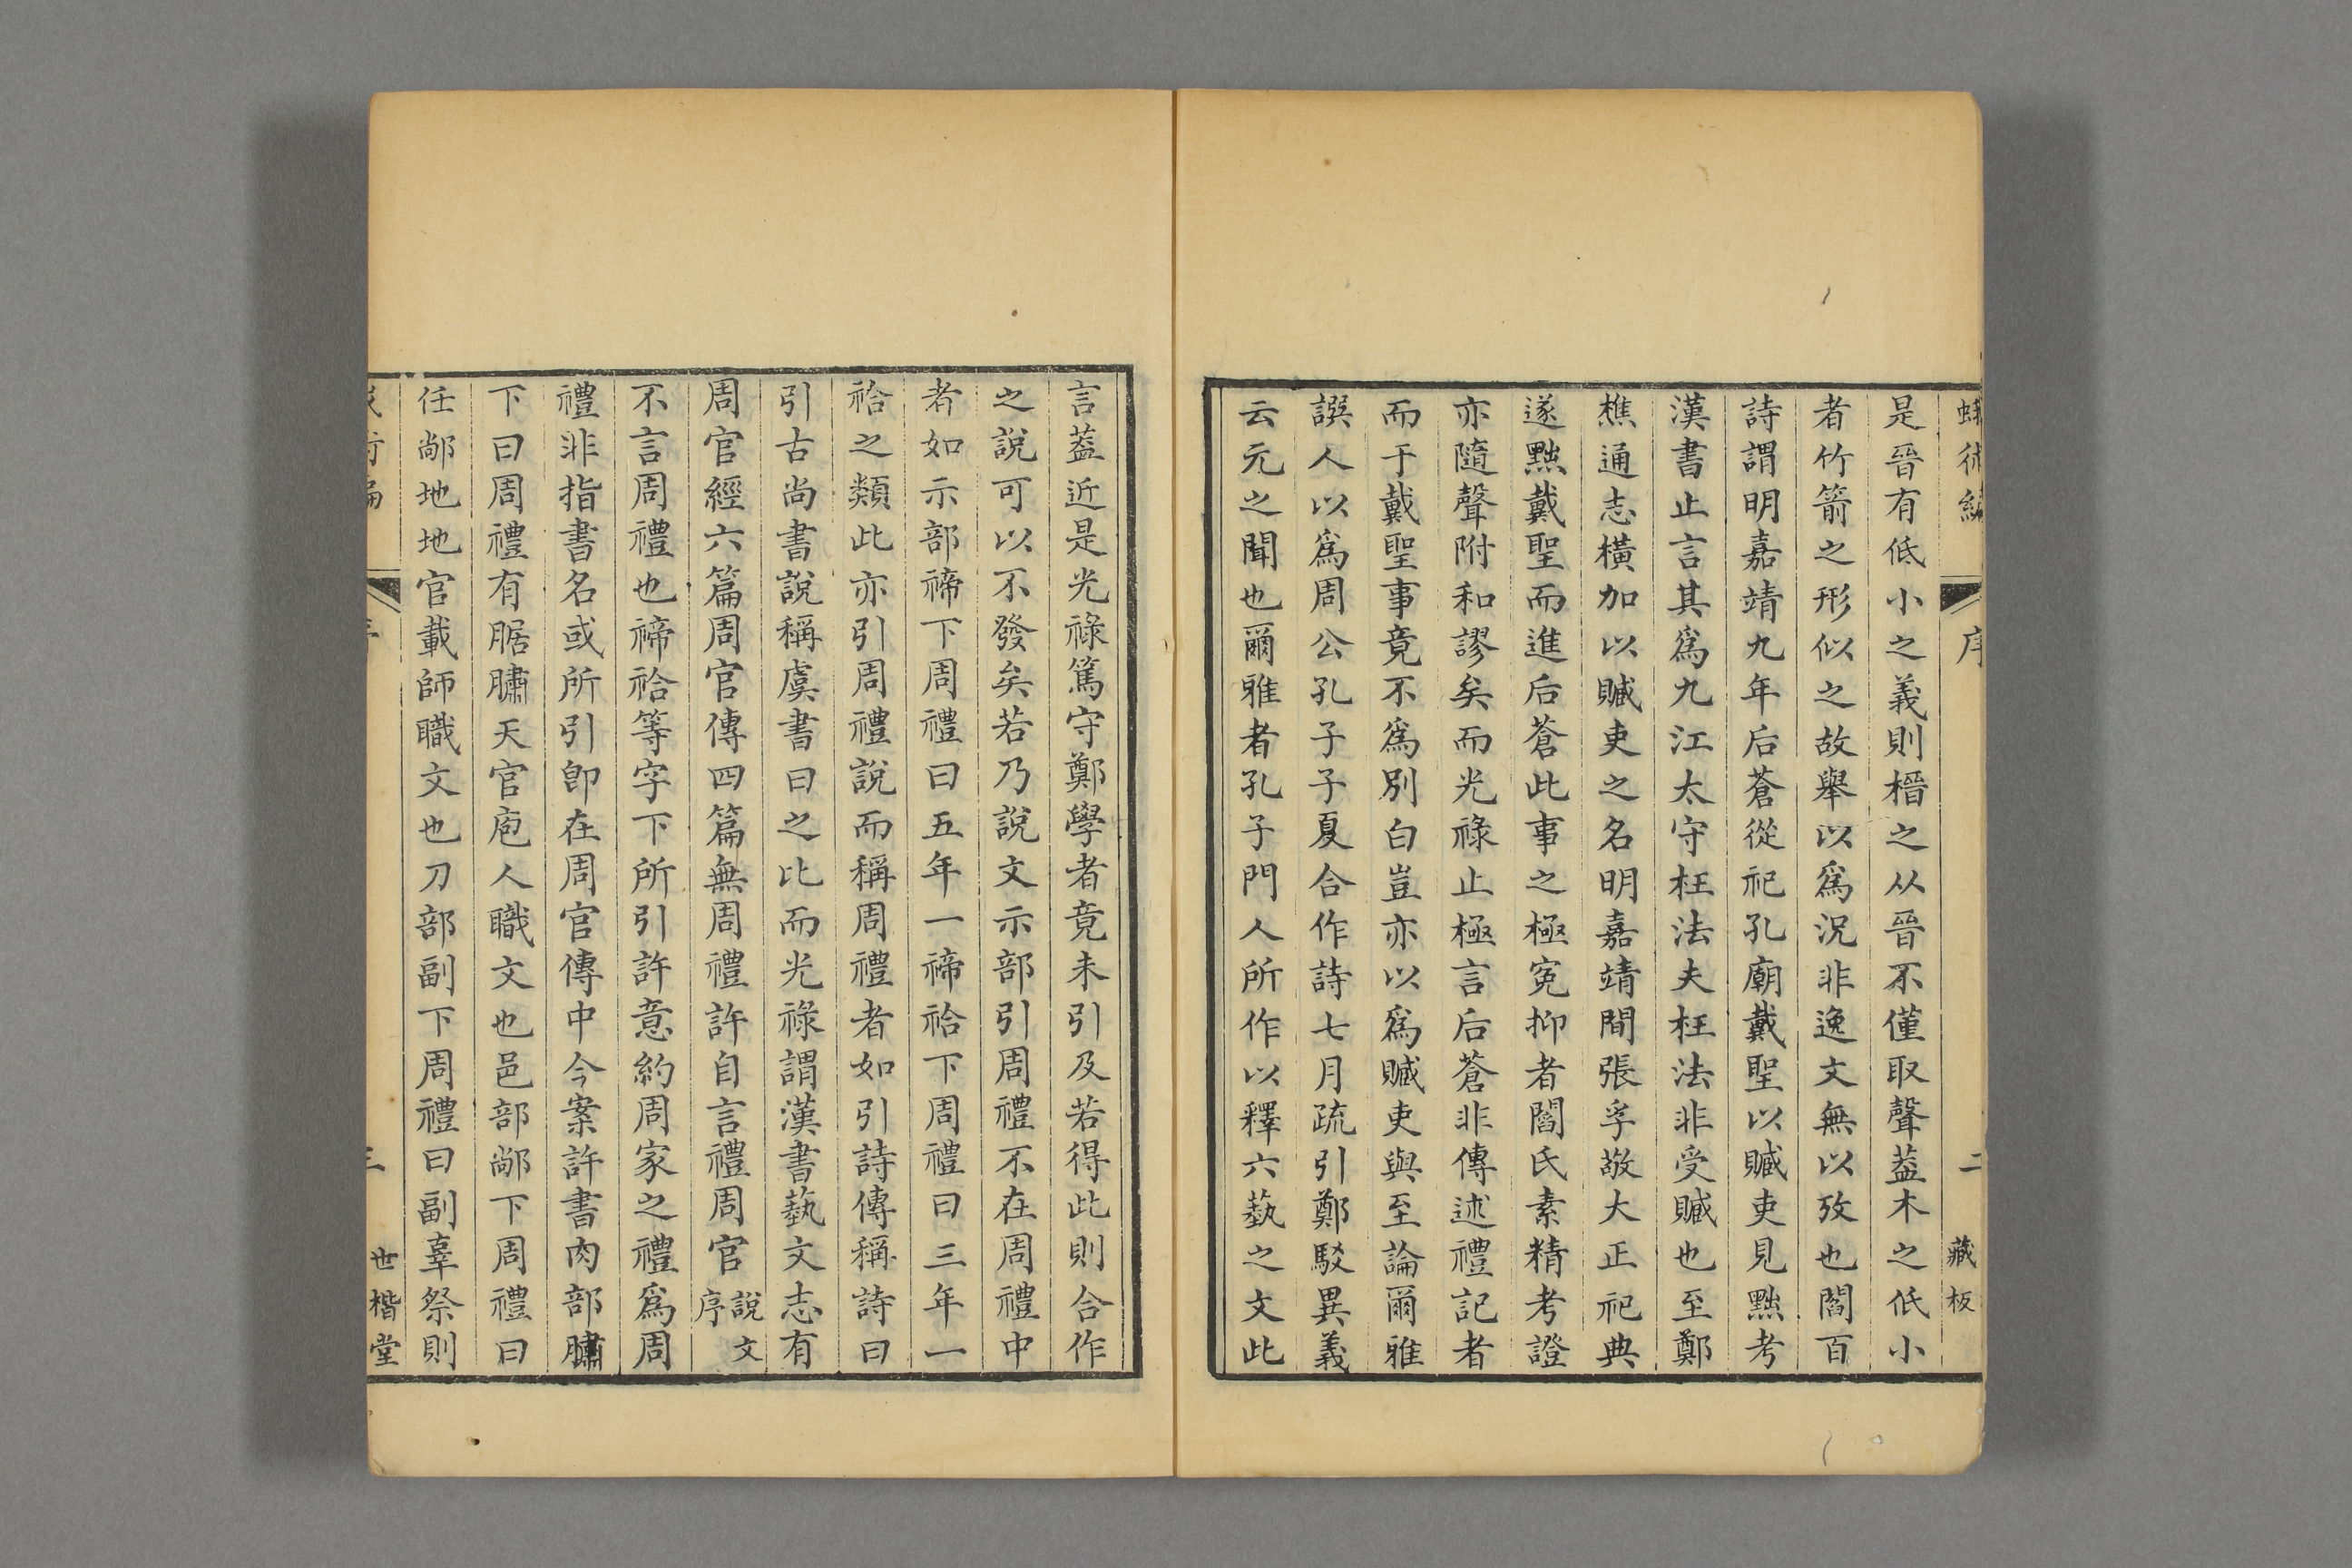 蛾術編 序 二 藏板
是晉有低小之義則榗之从晉不僅取聲葢木之低小
者竹箭之形似之故舉以爲況非逸文無以攷也閻百
詩謂明嘉靖九年后蒼從祀孔廟戴聖以贓吏見黜考
漢書止言其爲九江太守枉法夫枉法非受贓也至鄭
樵通志橫加以贓吏之名明嘉靖間張孚敬大正祀典
遂黜戴聖而進后蒼此事之極冤抑者閻氏素精考證
亦隨聲附和謬矣而光祿止極言后蒼非傳述禮記者
而于戴聖事竟不爲別白豈亦以爲贓吏與至論爾雅
譔人以爲周公孔子子夏合作詩七月疏引鄭駁異義
云元之聞也爾雅者孔子門人所作以釋六蓺之文此
言葢近是光祿篤守鄭學者竟未引及若得此則合作
之說可以不發矣若乃說文示部引周禮不在周禮中
者如示部禘下周禮曰五年一禘祫下周禮曰三年一
祫之類此亦引周禮說而稱周禮者如引詩傳稱詩曰
引古尚書說稱虞書曰之比而光祿謂漢書蓺文志有
周官經六篇周官傳四篇無周禮許自言禮周官說文序
不言周禮也禘祫等字下所引許意約周家之禮爲周
禮非指書名或所引卽在周官傳中今案許書肉部膴
下曰周禮有腒膴天官庖人職文也邑部鄁下周禮曰
任鄁地地官載師職文也刀部副下周禮曰副辜祭則
三 世楷堂